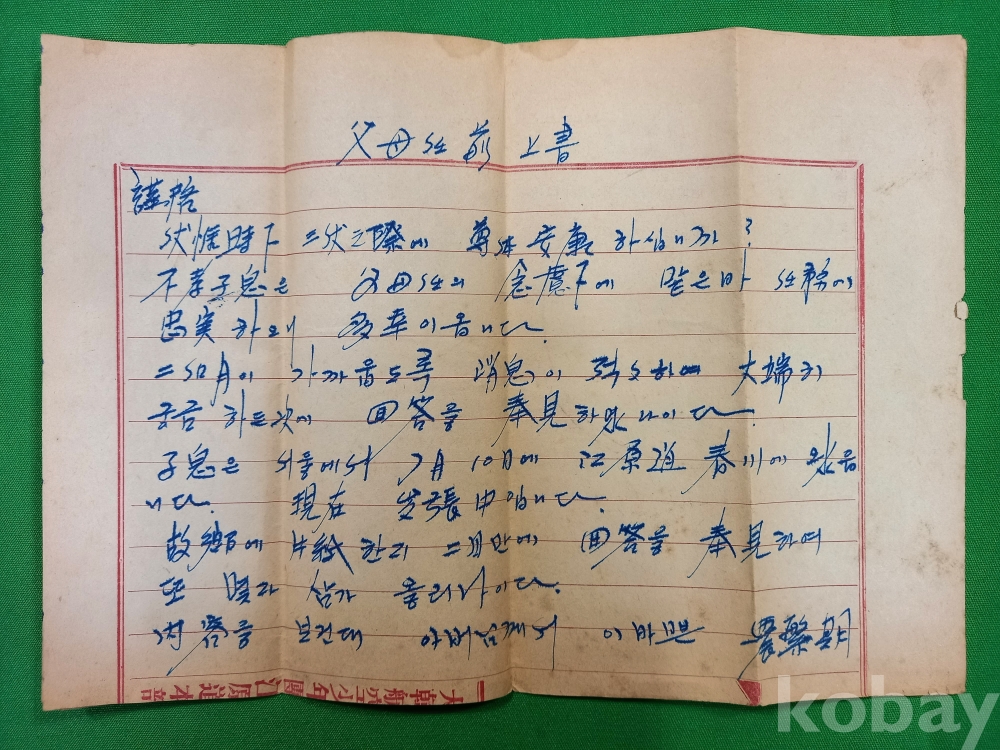 父母任前 上書
謹啓
伏惟時下 三伏之際에 尊体安康 하십니까?
不孝子息은 父母任의 念慮下에 맡은바 任務에
忠実하오매 多幸이옵니다.
二個月이 가까웁도록 消息이 하여 大端히
궁금 하든次에 回答을 奉見하였나이다.
子息은 서울에서 7月 10日에 江原道 春川에 왔읍
니다. 現在 出張中입니다.
故鄕에 片紙한리 二個月만에 回答을 奉見하며
또 몇자 삼가 올리나이다.
內容을 보건대 아버님께서 이 바쁜 農繁期
江原道本部
kobay